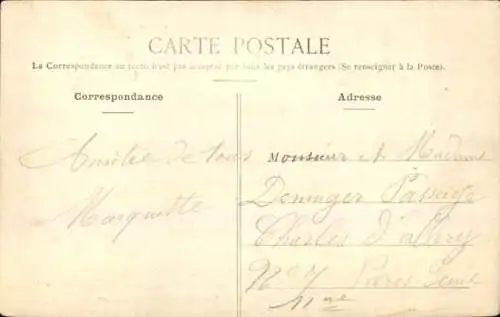 CARTE POSTALE
La Correspondance au recto n'est pas acceptée par tous les pays étrangers (Se renseigner à la Poste).
Correspondance
Adresse
Amitié de tous
Marguitte
Monsieur et Madame
Deninger Passage
Charles d'allery
No 7 Paris Seine
11me